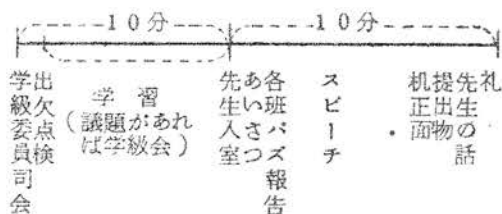 10分
10分
学級委員司会
出欠点検
学習
（議題があれ
ば学級会）
先生入室
あいさつ
各班バズ報告
スピーチ
机正面
提出物
先生の話
礼